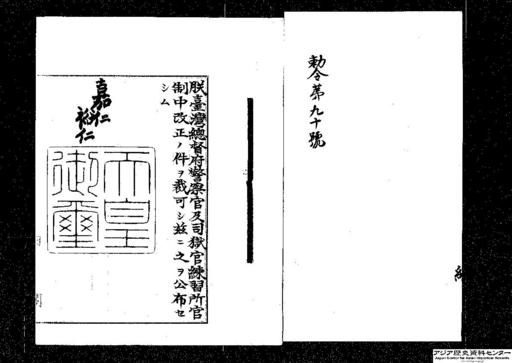 勅令第九十號
朕臺灣總督府警察官及司獄官練習所官
制中改正ノ件ヲ裁可シ茲ニ之ヲ公布セ
シム
嘉仁
裕仁
天皇
御璽
アジア歴史資料センター
Japan Center for Asian Historical Records